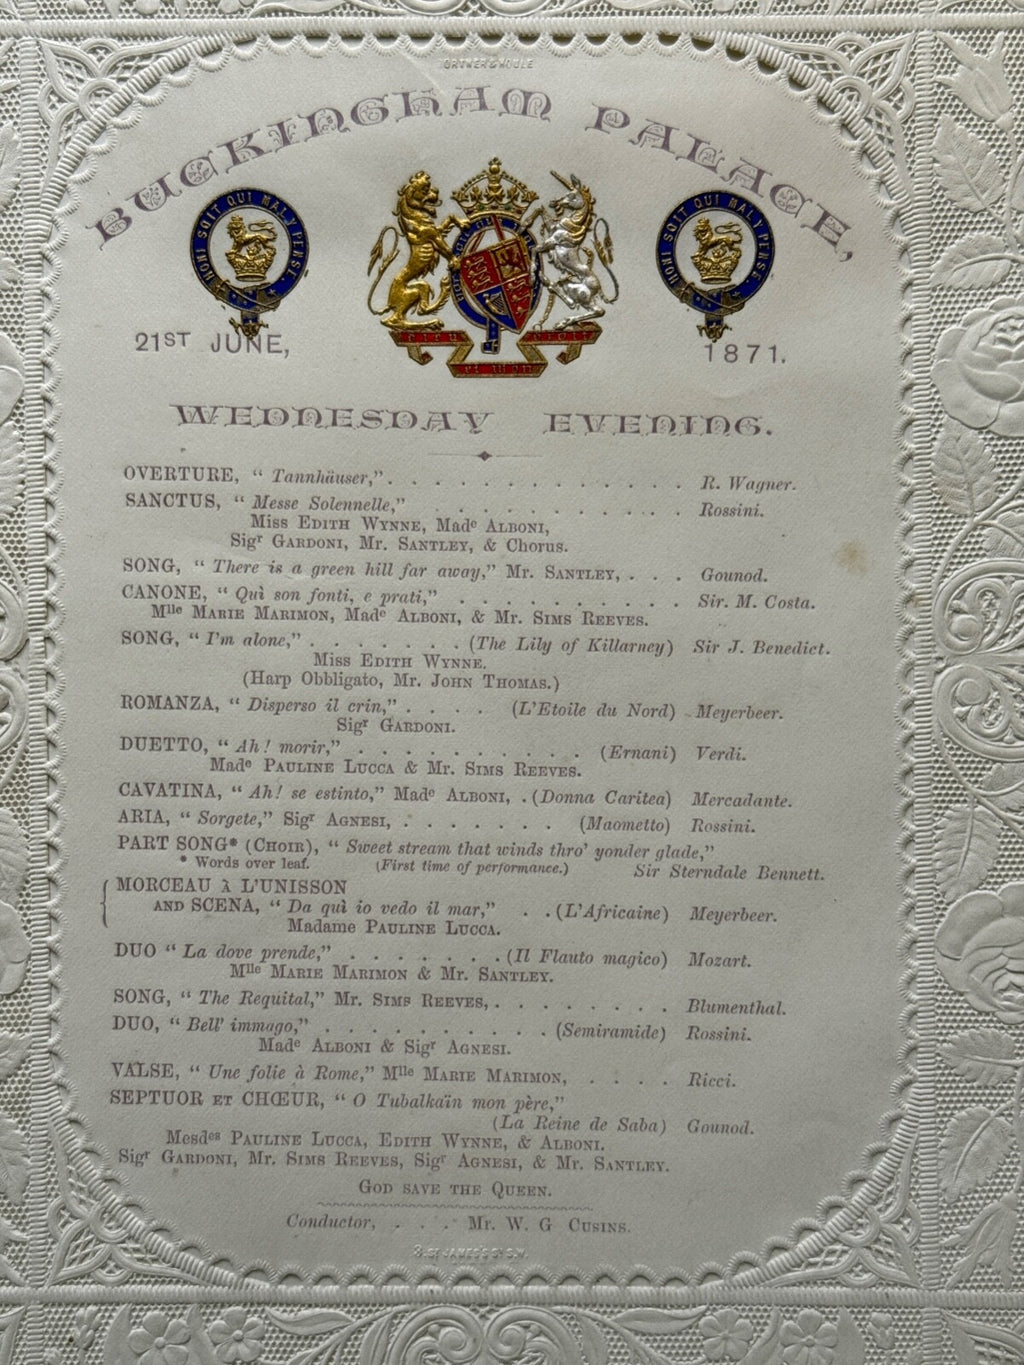 ORTNER & HOULE
BUCKINGHAM PALACE,
HONI SOIT QUI MAL Y PENSE.
HONI SOIT QUI MAL Y PENSE.
21ST JUNE, 1871.
WEDNESDAY EVENING.
OVERTURE, “ Tannhäuser,” . . . . . . . . . . . . . R. Wagner.
SANCTUS, “ Messe Solennelle,” . . . . . . . . . . . Rossini.
Miss EDITH WYNNE, Madᵉ ALBONI,
Sigʳ GARDONI, Mr. SANTLEY, & Chorus.
SONG, “ There is a green hill far away,” Mr. SANTLEY, . . . Gounod.
CANONE, “ Quì son fonti, e prati,” . . . . . . . . . . Sir. M. Costa.
Mˡˡᵉ MARIE MARIMON, Madᵉ ALBONI, & Mr. SIMS REEVES.
SONG, “ I'm alone,” . . . . . . . (The Lily of Killarney) Sir J. Benedict.
Miss EDITH WYNNE.
(Harp Obbligato, Mr. JOHN THOMAS.)
ROMANZA, “ Disperso il crin,” . . . . (L'Etoile du Nord) Meyerbeer.
Sigʳ GARDONI.
DUETTO, “ Ah! morir,” . . . . . . . . . . (Ernani) Verdi.
Madᵉ PAULINE LUCCA & Mr. SIMS REEVES.
CAVATINA, “ Ah! se estinto,” Madᵉ ALBONI, . (Donna Caritea) Mercadante.
ARIA, “ Sorgete,” Sigʳ AGNESI, . . . . . . . (Maometto) Rossini.
PART SONG* (CHOIR), “ Sweet stream that winds thro' yonder glade,”
* Words over leaf. (First time of performance.) Sir Sterndale Bennett.
MORCEAU À L'UNISSON
AND SCENA, “ Da quì io vedo il mar,” . . (L'Africaine) Meyerbeer.
Madame PAULINE LUCCA.
DUO “ La dove prende,” . . . . . . . (Il Flauto magico) Mozart.
Mˡˡᵉ MARIE MARIMON & Mr. SANTLEY.
SONG, “ The Requital,” Mr. SIMS REEVES, . . . . . . . . Blumenthal.
DUO, “ Bell' immago,” . . . . . . . . . . (Semiramide) Rossini.
Madᵉ ALBONI & Sigʳ AGNESI.
VALSE, “ Une folie à Rome,” Mˡˡᵉ MARIE MARIMON, . . . . Ricci.
SEPTUOR ET CHŒUR, “ O Tubalkaïn mon père,”
(La Reine de Saba) Gounod.
Mesdᵉˢ PAULINE LUCCA, EDITH WYNNE, & ALBONI.
Sigʳ GARDONI, Mr. SIMS REEVES, Sigʳ AGNESI, & Mr. SANTLEY.
GOD SAVE THE QUEEN.
Conductor, . . . Mr. W. G CUSINS.
3. ST JAMES'S ST S.W.